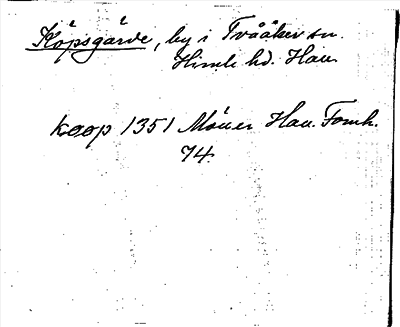 Köpsgärde, by i Tvååker sn.
Himle hd. Hall
koop 1351 Möller Hall. Fornh.
74.